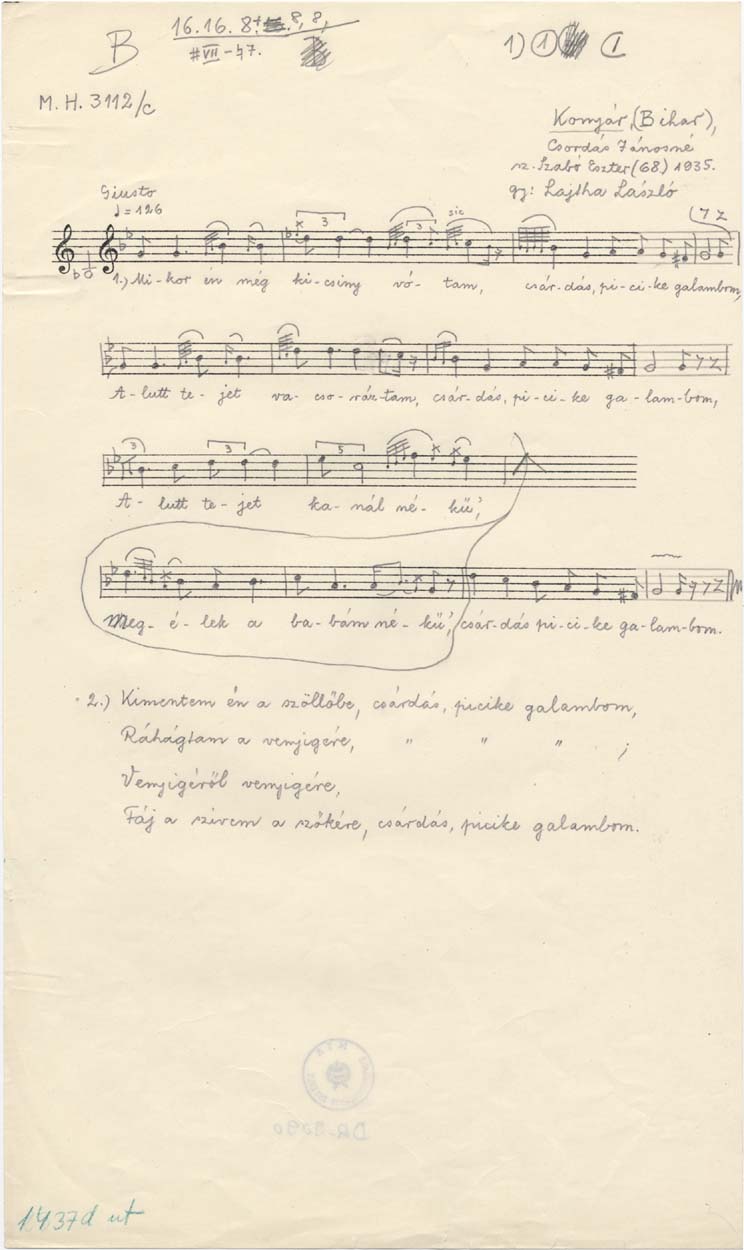 B
16.16.8+ 8,8,
#VII-b7.
1) 1 1
M.H. 3112/c
Konyár, (Bihar),
Csordás Jánosné
sz. Szabó Eszter (68) 1935.
gy: Lajtha László
Giusto
♩=126
3 3 sic
1.) Mi-kor én még ki-csiny vó-tam, csár-dás, pi-ci-ke galambom,
A-lutt te-jet va-cso-ráz-tam, csár-dás, pi-ci-ke ga-lam-bom,
3 3 5
A-lutt te-jet ka-nál né-kű',
Meg-é-lek a ba-bám né-kű', csár-dás pi-ci-ke ga-lam-bom.
2.) Kimentem én a szöllőbe, csárdás, picike galambom,
Ráhágtam a venyigére, " " " ;
Venyigéről venyigére,
Fáj a szívem a szőkére, csárdás, picike galambom.
1437d ut